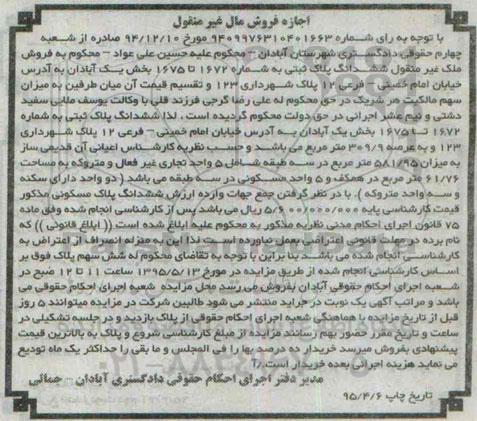 اجازه فروش مال غیر منقول
با توجه به رای شماره ۹۴۰۹۹۷۶۳۱۰۴۰۱۶۶۳ مورخ ۹۴/۱۲/۱۰ صادره از شعبه
چهارم حقوقی دادگستری شهرستان آبادان – محکوم علیه حسین علی عواد – محکوم به فروش
ملک غیر منقول ششدانگ پلاک ثبتی به شماره ۱۶۷۲ تا ۱۶۷۵ بخش یک آبادان به آدرس
خیابان امام خمینی – فرعی ۱۲ پلاک شهرداری ۱۲۳ و تقسیم قیمت آن میان طرفین به میزان
سهم مالکیت هر شریک در حق محکوم له علی رضا گرجی فرزند قلی با وکالت یوسف ملایی سفید
دشتی و نیم عشر اجرائی در حق دولت محکوم گردیده است . لذا ششدانگ پلاک ثبتی به شماره
۱۶۷۲ تا ۱۶۷۵ بخش یک آبادان به آدرس خیابان امام خمینی – فرعی ۱۲ پلاک شهرداری
۱۲۳ و به عرصه ۳۰۹/۹ متر مربع می باشد و حسب نظریه کارشناس اعیانی آن قدیمی ساز
به میزان ۵۸۱/۹۵ متر مربع در سه طبقه شامل ۵ واحد تجاری غیر فعال و متروکه به مساحت
۶۱/۷۶ متر مربع در همکف و ۵ واحد مسکونی در سه طبقه می باشد ( دو واحد دارای سکنه
و سه واحد متروکه ) . با در نظر گرفتن جمع جهات وارده ارزش ششدانگ پلاک مسکونی مذکور
قیمت کارشناسی پایه ۵/۶۰۰/۰۰۰/۰۰۰ ریال می باشد پس از کارشناسی انجام شده وفق ماده
۷۵ قانون اجرای احکام مدنی نظریه مذکور به محکوم علیه ابلاغ شده است (( ابلاغ قانونی )) که
نام برده در مهلت قانونی اعتراضی بعمل نیاورده است لذا این به منزله انصراف از اعتراض به
کارشناسی انجام شده می باشد بنا براین با توجه به تقاضای محکوم له شش سهم پلاک فوق بر
اساس کارشناسی انجام شده از طریق مزایده در مورخ ۱۳۹۵/۵/۱۳ ساعت ۱۱ تا ۱۲ صبح در
شعبه اجرای احکام حقوقی آبادان بفروش می رسد محل مزایده شعبه اجرای احکام حقوقی می
باشد و مراتب آگهی یک نوبت در جراید منتشر می شود طالبین شرکت در مزایده میتوانند ۵ روز
قبل از تاریخ مزایده با هماهنگی شعبه اجرای احکام حقوقی از پلاک بازدید و در جلسه تشکیلی در
ساعت و تاریخ مقرر حضور بهم رسانند مزایده از مبلغ کارشناسی شروع و پلاک به بالاترین قیمت
پیشنهادی بفروش میرسد خریدار ده درصد بها را فی المجلس و ما بقی را حداکثر یک ماه تودیع
می نماید هزینه اجرائی بعده خریدار است./آ
مدیر دفتر اجرای احکام حقوقی دادگستری آبادان – جمالی
تاریخ چاپ ۹۵/۴/۶